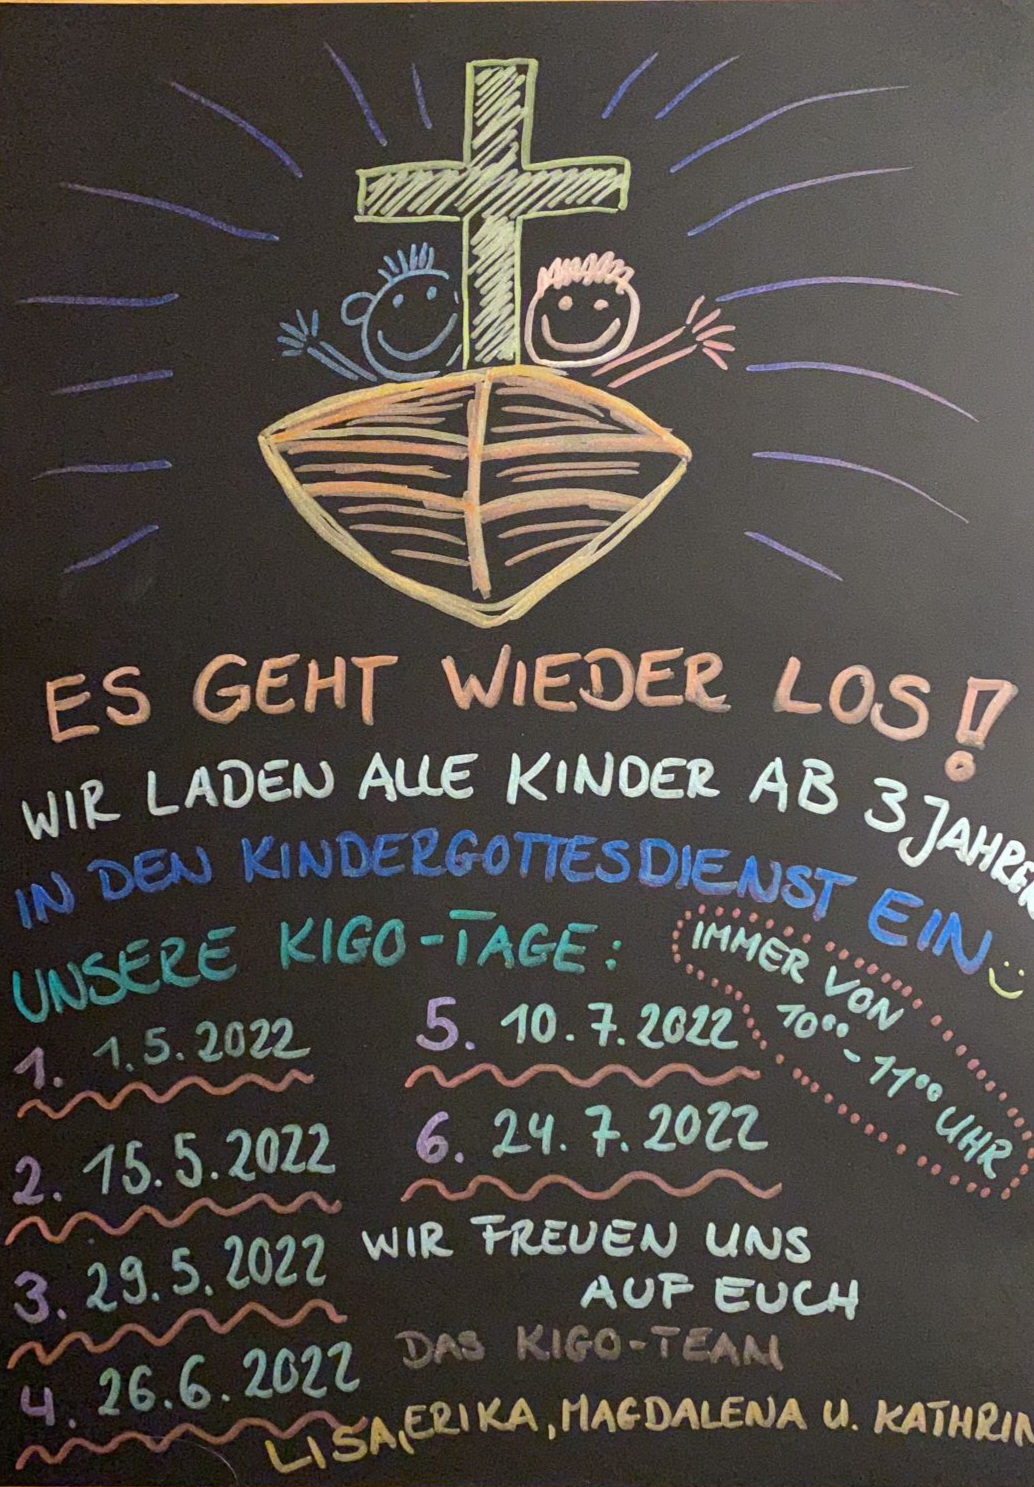 ES GEHT WIEDER LOS!
WIR LADEN ALLE KINDER AB 3 JAHREN
IN DEN KINDERGOTTESDIENST EIN
UNSERE KIGO-TAGE:
IMMER VON
10⁰⁰ - 11⁰⁰ UHR
1. 1.5.2022
2. 15.5.2022
3. 29.5.2022
4. 26.6.2022
5. 10.7.2022
6. 24.7.2022
WIR FREUEN UNS
AUF EUCH
DAS KIGO-TEAM
LISA, ERIKA, MAGDALENA U. KATHRIN